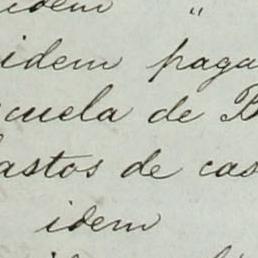 idem "
idem paga
cuela de B
astos de cas
idem